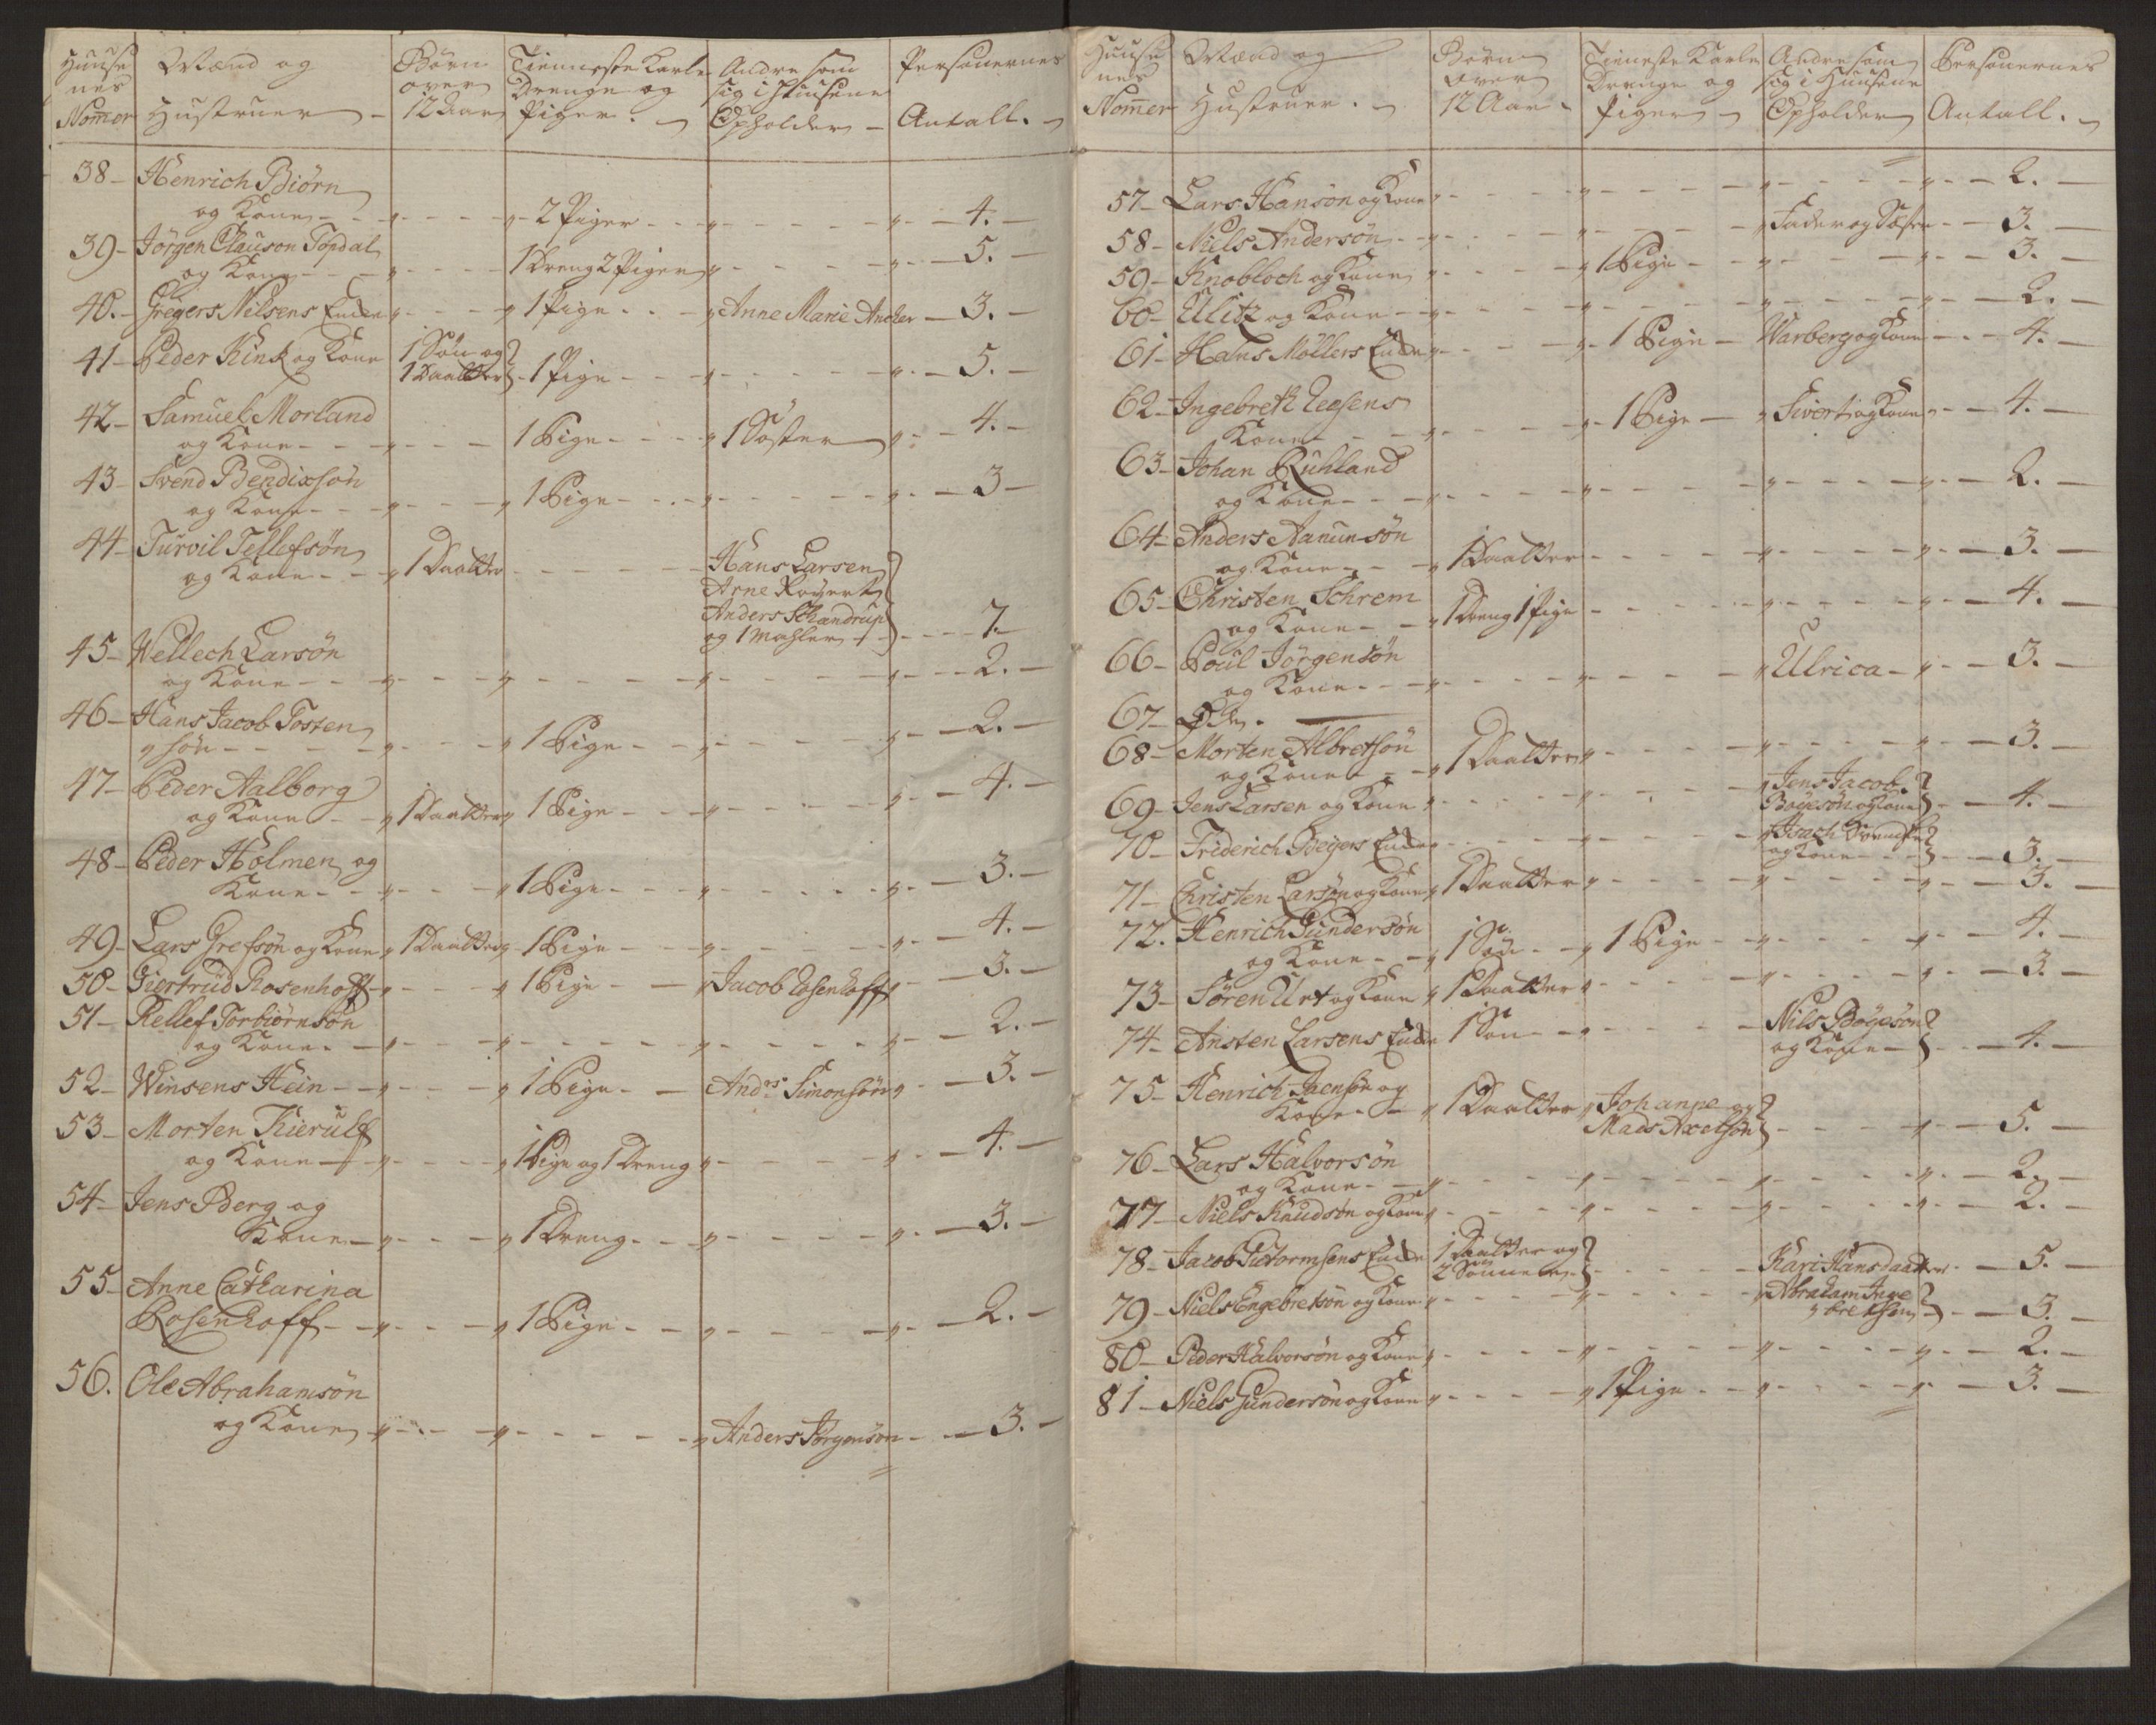 Huuse Mænd og Børn Tienneste Karle Andre som Personernes
nes over Drenge og sig i Huusene
Nomer Hustruer 12 Aar Piger. Opholder Antall.
38 Henrich Biörn
og Kone 2 Piger 4.
39 Jörgen Clauson Topdal
og Kone 1 Dreng 2 Piger 5.
40. Gregers Nilsens Enke 1 Pige Anne Marie Ancher 3.
41 Peder Kink og Kone 1 Søn og
1 Daatter 1 Pige 5.
42 Samuel Morland
og Kone 1 Pige 1 Søster 4.
43 Svend Bendixsön
og Kone 1 Pige 3
44 Turvil Tellefsön
og Kone 1 Daatter Hans Larsen
Arne Royert
Anders Schandrup
og 1 Mahler 7.
45 Wellech Larsön
og Kone 2.
46 Hans Jacob Tosten
sön 1 Pige 2.
47 Peder Aalborg
og Kone 1 Daatter 1 Pige 4.
48 Peder Holmen og
Kone 1 Pige 3.
49 Lars Grefsön og Kone 1 Daatter 1 Pige 4.
50 Giertrud Rosenhoff 1 Pige Jacob Rosenhoff 3.
51 Rellef Torbiörnsön
og Kone 2.
52 Winsens Hein 1 Pige Andrs Simonsön 3.
53 Morten Kierulf
og Kone 1 Pige og 1 Dreng 4.
54 Jens Berg og
Kone 1 Dreng 3.
55 Anne Catharina
Rosenhoff 1 Pige 2.
56. Ole Abrahamsön
og Kone Anders Jörgensön 3.
Huuse Mænd og Børn Tieneste Karle Andre som Personernes
nes over Drenge og sig i Huusene
Nomer Hustruer. 12 Aar Piger Opholder Antall.
57 Lars Hansön og Kone 2.
58 Niels Andersön Fader og Søster 3.
59 Knobloch og Kone 1 Pige 3.
60 Ulitz og Kone 2.
61 Hans Möllers Enke 1 Pige Warberg og Kone 4.
62 Ingebreth
Kone 1 Pige Sivert og Kone 4.
63 Johan Ruhland
og Kone 2.
64 Anders Aanunsön
og Kone 1 Daatter 3.
65 Christen Schrem
og Kone 1 Dreng 1 Pige 4.
66 Poul Jörgensön
og Kone Ulrica 3.
67 Øde.
68 Morten Albretsön
og Kone 1 Daatter 3.
69 Jens Larsen og Kone Jens Jacob
Boyesön og Kone 4.
70 Friderich Beyers Enke Isach Svendsen
og Kone 3.
71 Christen Larsön og Kone 1 Daatter 3.
72. Henrich Gundersön
og Kone 1 Søn 1 Pige 4.
73 Sören Urt og Kone 1 Daatter 3.
74 Ansten Larsens Enke 1 Søn Nils Böyesön
og Kone 4.
75 Henrich Jaensön og
Kone 1 Daatter Johanne og
Mads Axelsön 5.
76 Lars Halvorsön
og Kone 2.
77 Niels Knudsön og Kone 2.
78 Jacob Guttormsens Enke 1 Daatter og
2 Sönner Kari Hansdaatter 5.
79 Niels Engebretsön og Kone Abraham Inge
bretsen 3.
80 Peder Halvorsön og Kone 2.
81 Niels Gundersön og Kone 1 Pige 3.